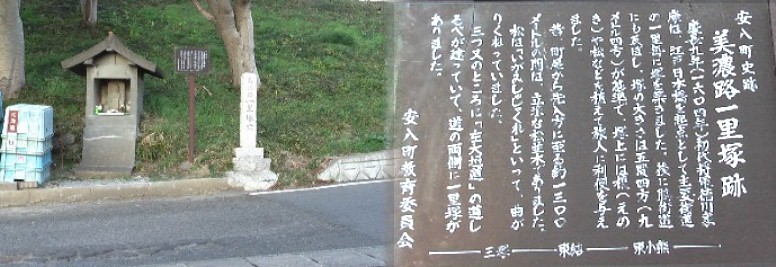 安八町史跡
美濃路一里塚跡
慶長九年(一六〇四年)初代将軍徳川家
康は、江戸日本橋を起点として主な街道
の一里毎に塚を築きました。後に脇街道
にも及ぼし、塚の大きさは五間四方(九
メートル四方)が基準で、塚上には榎(えの
き)や松などを植えて旅人に利便を与え
ました。
昔、町屋から
に至る約一三〇〇
メートルの間は、立派な松並木がありました。
松はいがみしじくれといって、曲が
りくねっていました。
三つ又のところに「左大垣道」の道し
るべが建っていて、道の両側に一里塚が
ありました。
安八町教育委員会
三塚
東結
東小熊